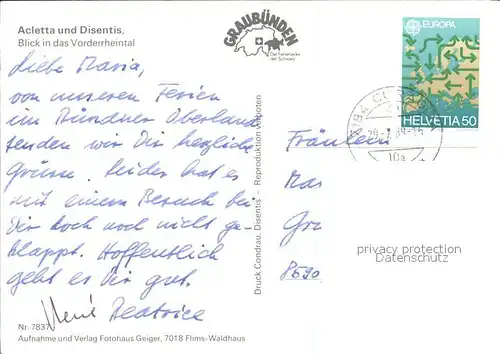 Acletta und Disentis,
Blick in das Vorderrheintal
GRAUBÜNDEN
Die Ferienecke
der Schweiz
EUROPA
HELVETIA 50
Liebe Maria,
von unseren Ferien
im Bündner Oberland
senden wir Dir herzliche
Grüsse. Leider hat es
mit einem Besuch bei
Dir doch noch nicht ge-
klappt. Hoffentlich
geht es Dir gut.
René Beatrice
Druck Condrau, Disentis - Reproduktion verboten
Fräulein
Mar
Gru
8590
privacy protection
Datenschutz
Nr. 7837
Aufnahme und Verlag Fotohaus Geiger, 7018 Flims-Waldhaus